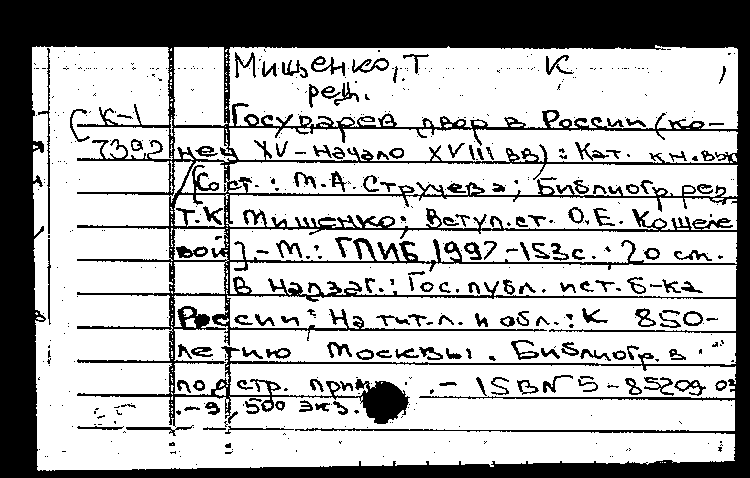 Мищенко, Т К
ред.
К-1 Государев двор в России (ко-
7392 нец XV-начало XVIII вв) : Кат. кн. выс
/[Сост. : М.А. Стручева; Библиогр. ред.
Т.К. Мищенко; Вступ. ст. О.Е. Кошеле
вой].- М.: ГПИБ, 1997.-153с. ; 20 см.
В надзаг.: Гос. публ. ист. б-ка
России; На тит.л. и обл.: К 850-
летию Москвы. Библиогр. в
подстр. прим. .- ISBN 5-85209-03
.-9, 500 экз.